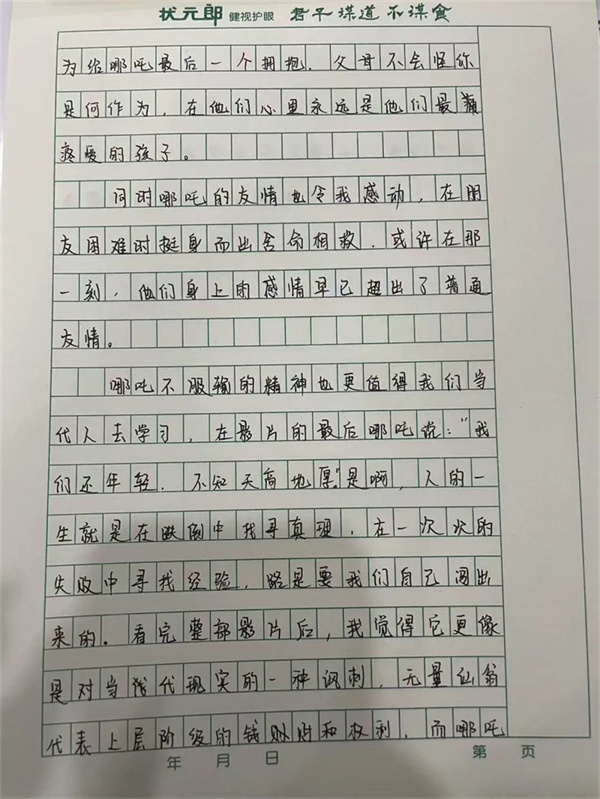 状元郎 健视护眼 君子谋道不谋食
为给哪吒最后一个拥抱，父母不会怪你
是何作为，在他们心里永远是他们最
疼爱的孩子。
同时哪吒的友情也令我感动，在朋
友困难时挺身而出舍命相救，或许在那
一刻，他们身上的感情早已超出了普通
友情。
哪吒不服输的精神也更值得我们当
代人去学习，在影片的最后哪吒说：“我
们还年轻，不知天高地厚”是啊，人的一
生就是在跌倒中找寻真理，在一次次的
失败中寻找经验，路是要我们自己闯出
来的。看完整部影片后，我觉得它更像
是对当代现实的一种讽刺，无量仙翁
代表上层阶级的钱财和权利，而哪吒
年 月 日 第 页